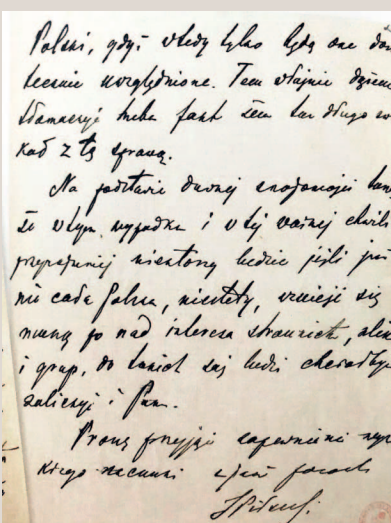 Polski, gdyż wtedy tylko będą one
tecznie uwzględnione. Tem właśnie
tłomaczyć trzeba fakt żem tak długo
kał z tą sprawą.
Na podstawie dawnej znajomości
że w tym wypadku i w tej ważnej chwili
przynajmniej niektórzy ludzie jeśli już
nie cała Polska, niestety, wznieść się
muszą po nad interesa stronnictw,
i grup, do takich zaś ludzi
zaliczyć i Pana.
Proszę przyjąć zapewnienie
kiego szacunku